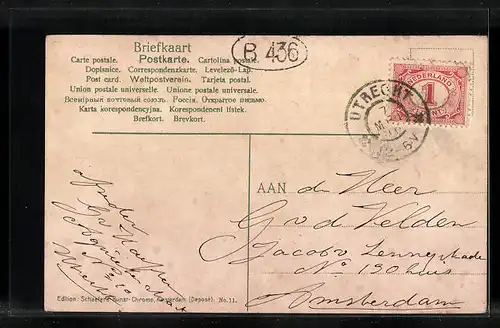 Briefkaart
B 436
Carte postale. Postkarte. Cartolina postale.
Dopisnice. Correspondenzkarte. Levelező-Lap.
Post card. Weltpostverein. Tarjeta postal.
Union postale universelle. Unione postale universale.
Всемірный почтовый союзъ. Россія. Открытое письмо.
Karta korespondencyjna. Korespondenční lístek.
Brefkort. Brevkort.
NEDERLAND
1
UTRECHT
AAN den Heer
G v d Velden
Jacob v Lennepkade
No 190 huis
Amsterdam
Afzender
Utrecht
Edition: Schaefers Kunst-Chromo, Amsterdam (Deposé) No. 11.